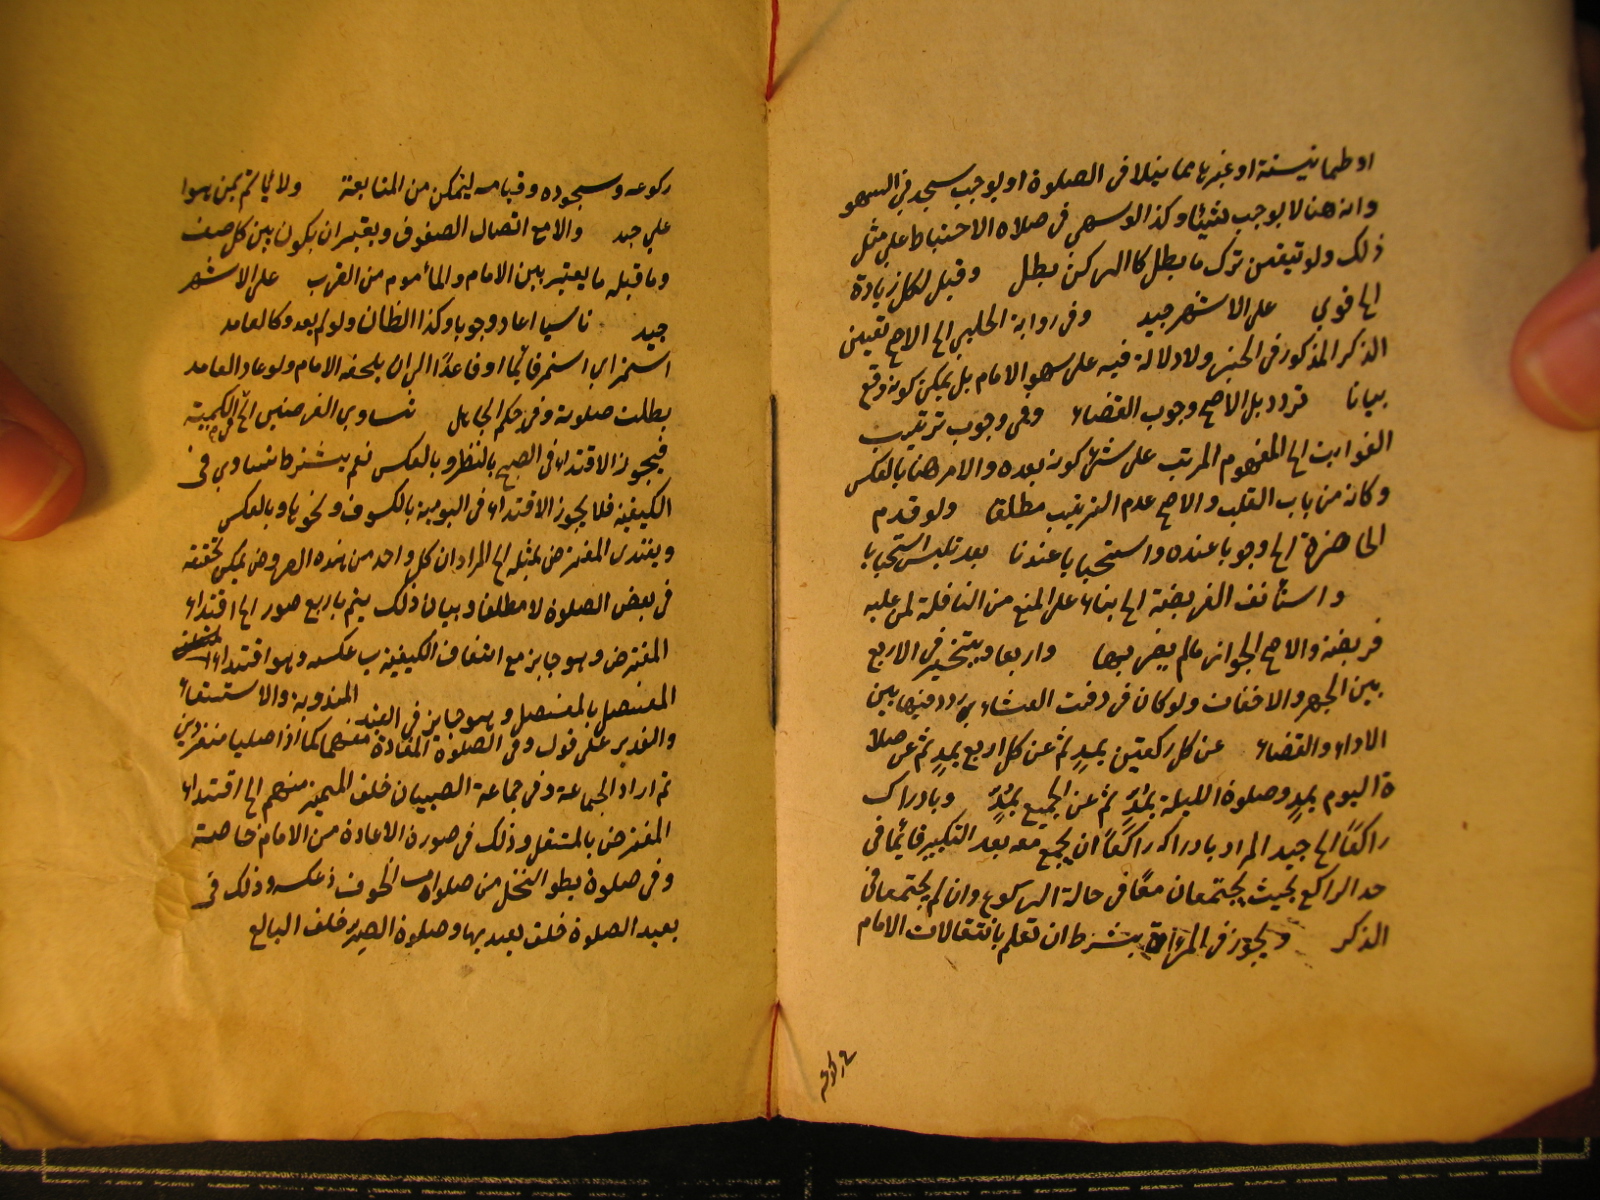 او طمانينة او غيرها مما يخلا فى الصلوة او يوجب سجدتى السهو
وانه هنا لا يوجب شيئا وكذا لو سهى فى صلاة الاحتياط على مثل
ذلك ولو تيقن ترك ما يبطل كالركن بطل وقيل لكل زيادة
الخ قوي على الاشهر جيد وفى رواية الحلبى الخ الاصح تعين
الذكر المذكور فى الخبر ولا دلالة فيه على سهو الامام بل يمكن كونه وقع
بيانا تردد بل الاصح وجوب القضاء وفى وجوب ترتيب
الفوايت الخ المفهوم المرتب على شئ كونه بعده والامر هنا بالعكس
وكانه من باب القلب والاصح عدم الترتيب مطلقا ولو قدم
الحاضرة الخ وجوبا عنده واستحبابا عندنا بعد تلبس استحبابا
واستأنف الفريضة الخ بناء على المنع من النافلة لمن عليه
فريضة والاصح الجواز مالم يضر بها واربعا ويتخير فى الاربع
بين الجهر والاخفات ولو كان فى وقت العشاء ردد فيها بين
الاداء والقضاء عن كل ركعتين بمد ثم عن كل اربع بمد ثم عن صلا
ة اليوم بمد وصلوة الليلة بمد ثم عن الجميع بمد وبادراك
راكعا الخ جيد المراد بادراكه راكعا ان يجمع معه بعد التكبير قائما فى
حد الراكع بحيث يجتمعان معا فى حالة الركوع وان لم يجتمعا فى
الذكر ويجوز فى المرأة بشرط ان تعلم بانتقالات الامام
ركوعه
ركوعه وسجوده وقيامه ليتمكن من المتابعة ولا يأتم بمن هوا
على جيد والاصح اتصال الصفوف ويعتبر ان يكون بين كل صف
وما قبله ما يعتبر بين الامام والمأموم من القرب على الاشهر
جيد ناسيا اعاد وجوبا وكذا الظان ولو لم يعد وكالعامد
استمر اى استمر قائما او قاعدًا الى ان يلحقه الامام ولو عاد العامد
بطلت صلوته وفى حكم الجاهل تساوى الفرضين الخ فى الكمية
فيجوز الاقتداء فى الصبح بالظهر وبالعكس نعم يشترط تساوى فى
الكيفية فلا يجوز الاقتداء فى اليومية بالكسوف ونحوها وبالعكس
ويقتدى المفترض بمثله الخ المراد ان كل واحد من هذه الفروض يمكن تحققه
فى بعض الصلوة لا مطلقا وبيان ذلك يتم باربع صور الخ اقتداء
المفترض وهو جايز مع اتفاق الكيفية ب عكسه وهو اقتداء
المتنفل بالمتنفل وهو جايز فى العيد المندوبة والاستسقاء
والغدير على قول وفى الصلوة المعادة منهما كما اذا صليا منفردين
ثم ارادا الجماعة وفى جماعة الصبيان خلف المميز منهم الخ اقتداء
المفترض بالمتنفل وذلك فى صورة الاعادة من الامام خاصة
وفى صلوة بطن النخل من صلوات الخوف د عكسه وذلك فى
بعيد الصلوة خلف بعيدها وصلوة الصبى خلف البالغ